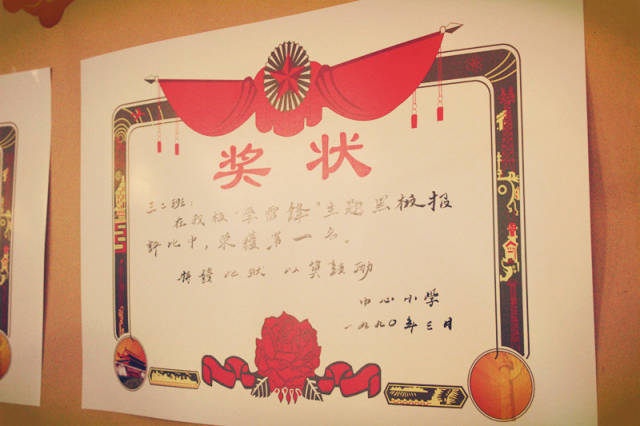 奖状
三二班：
在我校“学雷锋”主题黑板报
评比中，荣獲第一名。
特發此狀 以莫鼓励
中心小學
一九九〇年三月